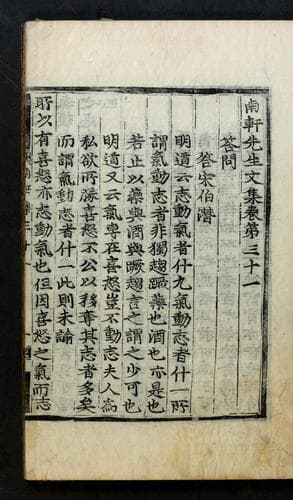 南軒先生文集卷第三十一
答問
答宋伯潛
明道云志動氣者什九氣動志者什一所
謂氣動志者非獨趨蹶藥也酒也亦是也
若止以藥與酒與蹶趨言之謂之少可也
明道又云氣專在喜怒豈不動志夫人為
私欲所勝喜怒不公以移奪其志者多矣
而謂氣動志者什一此則未諭
所以有喜怒亦志動氣也但因喜怒之氣而志